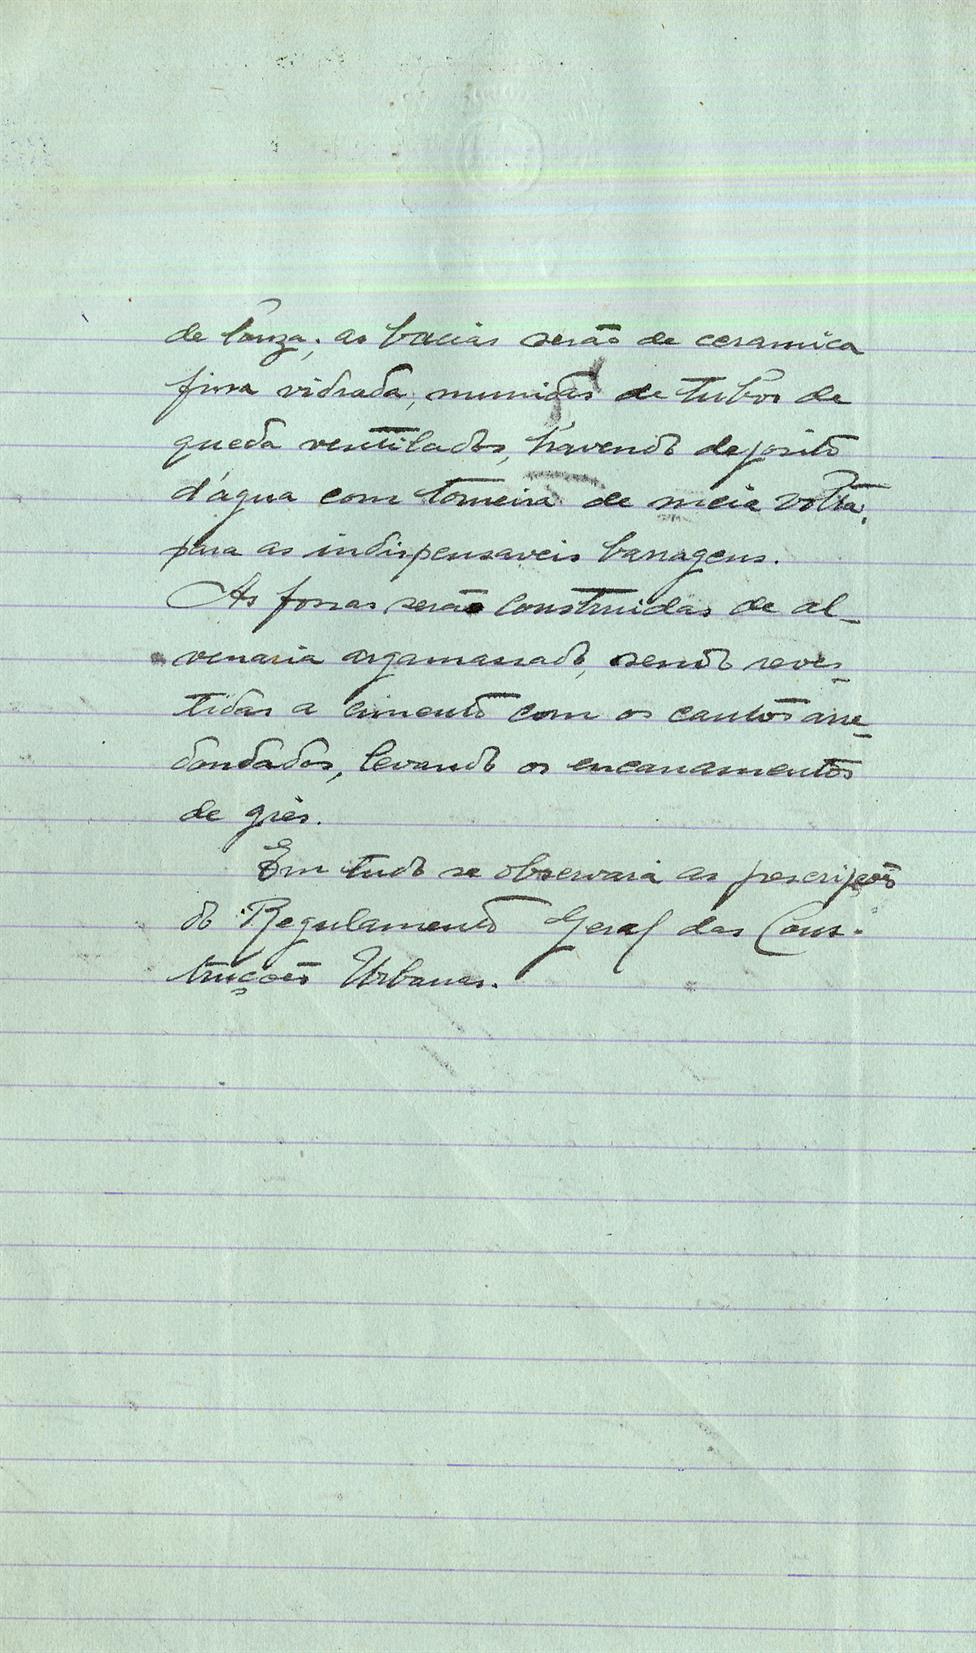 de louza; as bacias serão de ceramica
fina vidrada, munidas de tubos de
queda ventilados, havendo deposito
d'agua com torneira de meia volta,
para as indispensaveis lavagens.
As fossas serão construidas de al-
venaria argamassado, sendo reves-
tidas a cimento com os cantos arre-
dondados, levando os encanamentos
de grès.
Em tudo se observará as prescrições
do Regulamento Geral das Cons-
truções Urbanas.